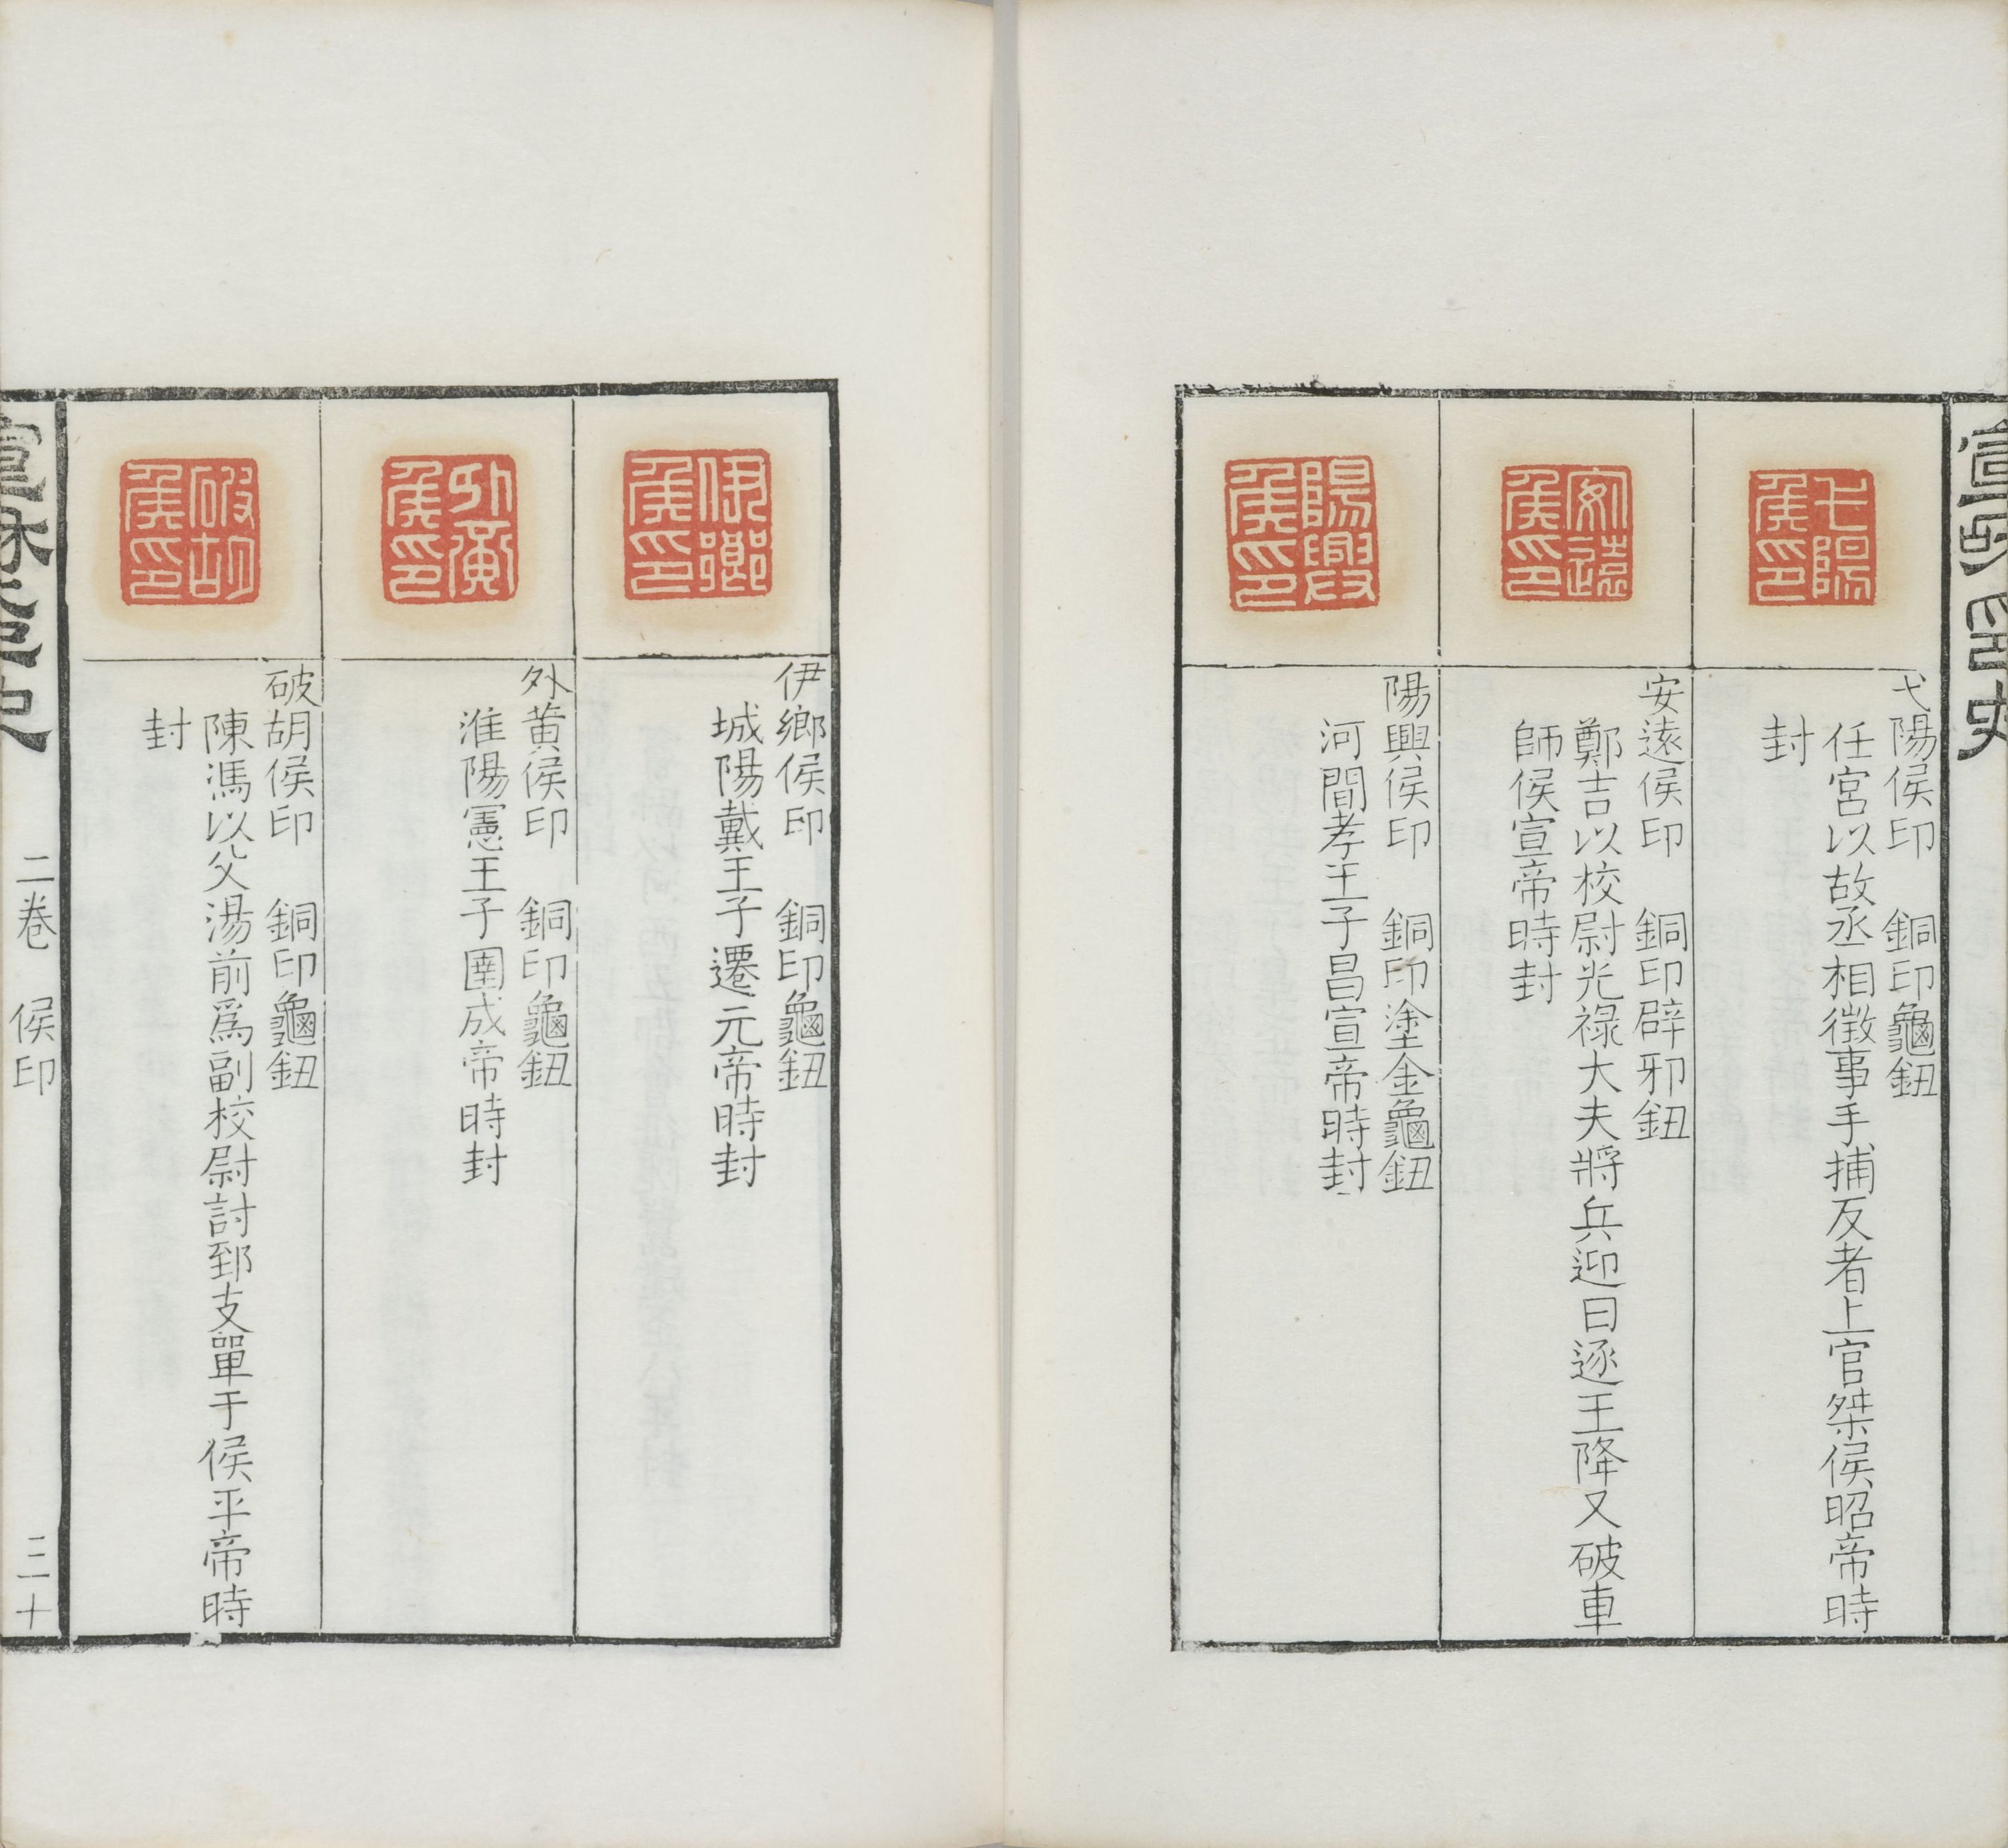 宣和印史
弋陽侯印
弋陽侯印　銅印龜鈕
任宮以故丞相徵事手捕反者上官桀侯昭帝時
封
安遠侯印
安遠侯印　銅印辟邪鈕
鄭吉以校尉光祿大夫將兵迎日逐王降又破車
師侯宣帝時封
陽興侯印
陽興侯印　銅印塗金龜鈕
河間孝王子昌宣帝時封
伊鄉侯印
伊鄉侯印　銅印龜鈕
城陽戴王子遷元帝時封
外黃侯印
外黃侯印　銅印龜鈕
淮陽憲王子圉成帝時封
破胡侯印
破胡侯印　銅印龜鈕
陳馮以父湯前爲副校尉討郅支單于侯平帝時
封
宣和印史　二卷　侯印　三十